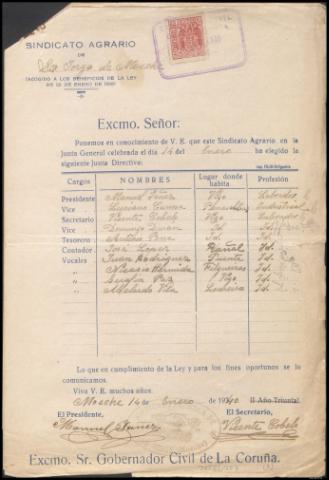 SINDICATO AGRARIO
DE
La Torga de Moeche
(ACOGIDO A LOS BENEFICIOS DE LA LEY
DE 28 DE ENERO DE 1906)
Excmo. Señor:
Ponemos en conocimiento de V. E. que este Sindicato Agrario en la
Junta General celebrada el día 14 del Enero ha elegido la
siguiente Junta Directiva:
Cargos NOMBRES Lugar donde habita Profesión
Presidente Manuel Núñez Vigo Labrador
Vice Industrial
Secretario Vicente Cobelo Vigo Labrador
Vice Domingo Durán Id. Id.
Tesorero Antonio Id. Id.
Contador José López Rañal Id.
Vocales Juan Rodríguez Puente Id.
„ Hermida Filgueiras Id.
„ Serafín Paz Vigo Id.
„ Abelardo Vila Id.
Lo que en cumplimiento de la Ley y para los fines oportunos se lo
comunicamos.
Viva V. E. muchos años.
Moeche 14 de Enero de 1940 II Año Triunfal
El Presidente, El Secretario,
Manuel Núñez Vicente Cobelo
Excmo. Sr. Gobernador Civil de La Coruña.